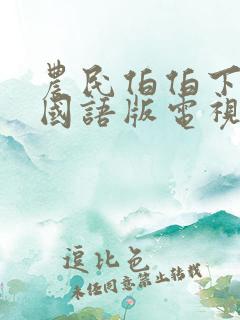 農民伯伯下
國語版電視
逗比色
未任同意禁止转载